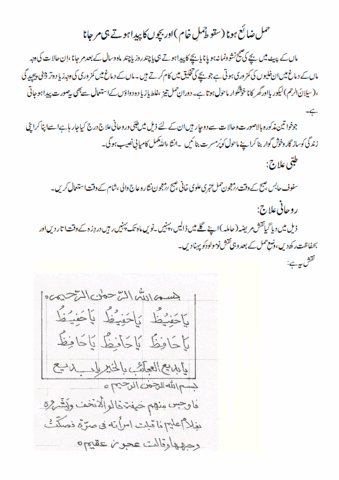 حمل ضائع ہونا (سقوطِ حمل خام) اور بچوں کا پیدا ہوتے ہی مر جانا
ماں کے پیٹ میں بچے کی صحیح نشوونما نہ ہونا یا بچے کا پیدا ہوتے ہی یا چند روز یا چند ماہ و سال کے بعد مر جانا، ان حالات کی وجہ
ماں کے دماغ میں ان خلیوں کی کمزوری ہوتی ہے جو بچے کی تخلیق میں کام کرتے ہیں۔ ماں کے دماغ میں کمزوری کی وجہ زیادہ تر ذہنی پیچیدگی
، (سیلان الرحم) لیکوریا اور گھر کا ناخوشگوار ماحول ہوتا ہے۔ دوران حمل تیز، غلط یا زیادہ دواؤں کے استعمال سے بھی یہ صورت پیدا ہو جاتی
ہے۔
جو خواتین مذکورہ بالا صورت و حالات سے دوچار ہیں ان کے لئے ذیل میں طبی و روحانی علاج درج کیا جا رہا ہے اسے اپنا کر اپنی
زندگی کو سازگار و خوش گوار بنا کر اپنے ماحول کو پُر مسرت بنائیں۔ انشاء اللہ مکمل کامیابی نصیب ہو گی۔
طبی علاج:
سفوف حابس صبح کے وقت، معجون حمل عنبری علوی خانی صبح اور معجون نشارہ عاج والی، شام کے وقت استعمال کریں۔
روحانی علاج:
ذیل میں دیا گیا نقش مریضہ (حاملہ) اپنے گلے میں ڈالیں، پہنیں۔ نویں ماہ تک پہنیں رہیں دردِزہ کے وقت اتار دیں اور
بحفاظت رکھ دیں، وضع حمل کے بعد وہی نقش نومولود کو پہنا دیں۔
نقش یہ ہے:
بسم اللہ الرحمٰن الرحیم
یَا حَفِیْظُ یَا حَفِیْظُ یَا حَفِیْظُ
یَا حَافِظُ یَا حَافِظُ یَا حَافِظُ
یا بدیع العجائب بالخیر یا بدیع
بسم اللہ الرحمٰن الرحیم
فاوجس منهم خيفة قالوا لا تخف وبشروه
بغلام عليم فاقبلت امرأته فى صرة فصكت
وجهها وقالت عجوز عقيم